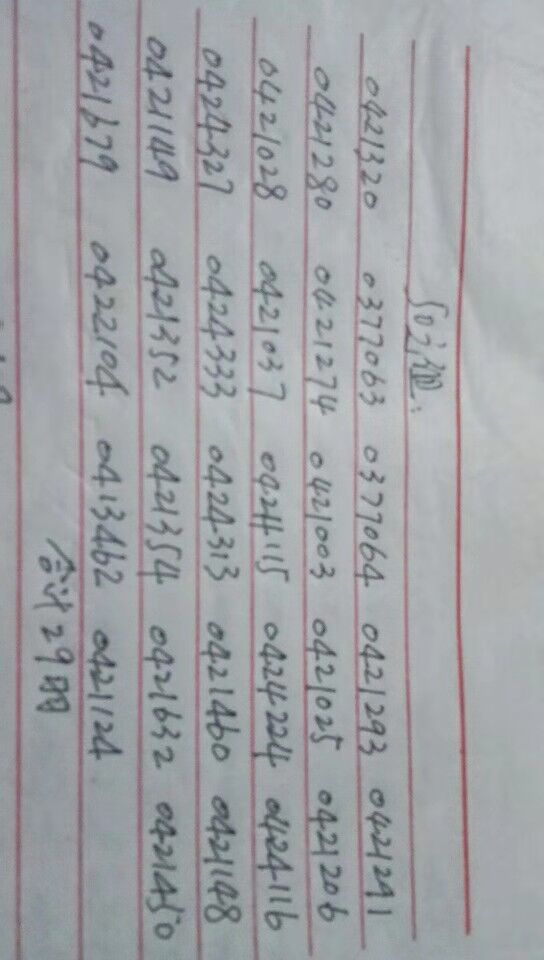 502硒:
0421320 0377063 0377064 0421293 0421241
0421280 0421274 0421003 0421025 0421206
0421028 0421037 0424115 0424224 0424116
0424327 0424333 0424313 0421460 0421148
0421149 0421352 0421354 0421632 0421450
0421679 0422104 0413462 0421124
合计29明